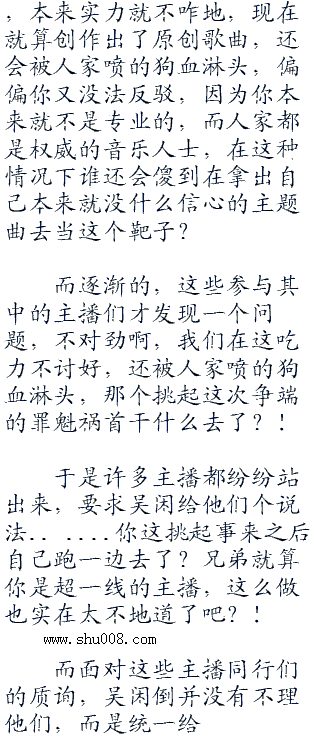 ，本来实力就不咋地，现在
就算创作出了原创歌曲，还
会被人家喷的狗血淋头，偏
偏你又没法反驳，因为你本
来就不是专业的，而人家都
是权威的音乐人士，在这种
情况下谁还会傻到在拿出自
己本来就没什么信心的主题
曲去当这个靶子？
而逐渐的，这些参与其
中的主播们才发现一个问
题，不对劲啊，我们在这吃
力不讨好，还被人家喷的狗
血淋头，那个挑起这次争端
的罪魁祸首干什么去了？！
于是许多主播都纷纷站
出来，要求吴闲给他们个说
法.. ....你这挑起事来之后
自己跑一边去了？兄弟就算
你是超一线的主播，这么做
也实在太不地道了吧？！
www.shu008.com
而面对这些主播同行们
的质询，吴闲倒并没有不理
他们，而是统一给